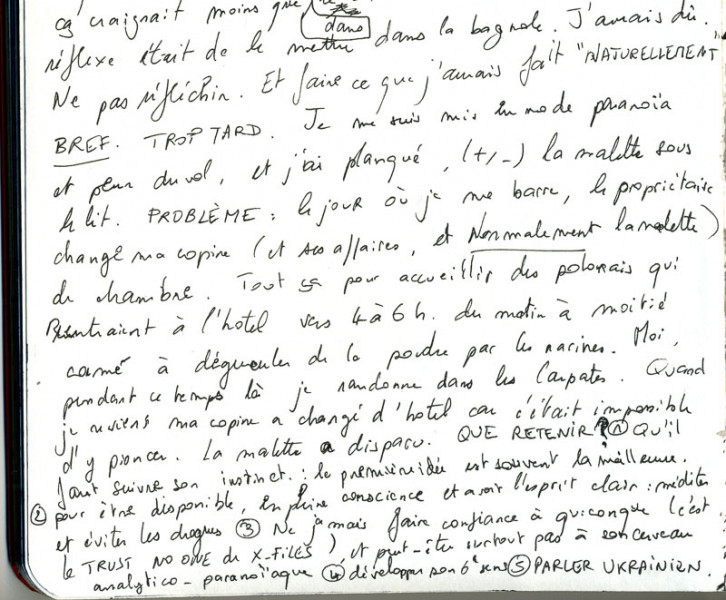 ça craignait moins que
dans
réflexe était de le mettre dans la bagnole. J'aurais dû
Ne pas réfléchir. Et faire ce que j'aurais fait "NATURELLEMENT
BREF. TROP TARD. Je me suis mis en mode paranoïa
et peur du vol, et j'ai planqué, (+/-) la malette sous
le lit. PROBLÈME : le jour où je me barre, le propriétaire
change ma copine (et ses affaires, et Normalement la malette)
de chambre. Tout ça pour accueillir des polonais qui
rentraient à l'hotel vers 4 à 6 h. du matin à moitié
à dégueuler de la poudre par les narines. Moi,
pendant ce temps là je randonne dans les Carpates. Quand
je reviens ma copine a changé d'hotel car c'était impossible
d'y pioncer. La malette a disparu. QUE RETENIR ? ① Qu'il
faut suivre son instinct. : la première idée est souvent la meilleure.
② pour être disponible, en pleine conscience et avoir l'esprit clair : méditer
et éviter les drogues ③ Ne jamais faire confiance à quiconque (c'est
le TRUST NO ONE de X-FILES), et peut-être surtout pas à son cerveau
analytico-paranoïaque ④ développer son 6e sens ⑤ PARLER UKRAINIEN.